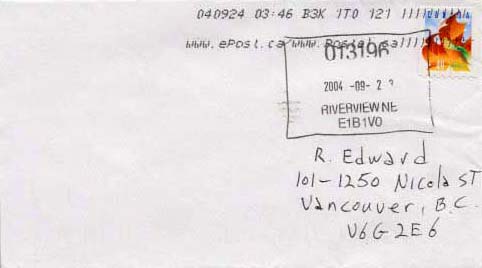 040924 03:46 B3K 1T0 121
www.ePost.ca/www.Postel.ca
013196
2004 -09- 2
RIVERVIEW NE
E1B1V0
R. Edward
101-1250 Nicola ST
Vancouver, B.C.
V6G 2E6